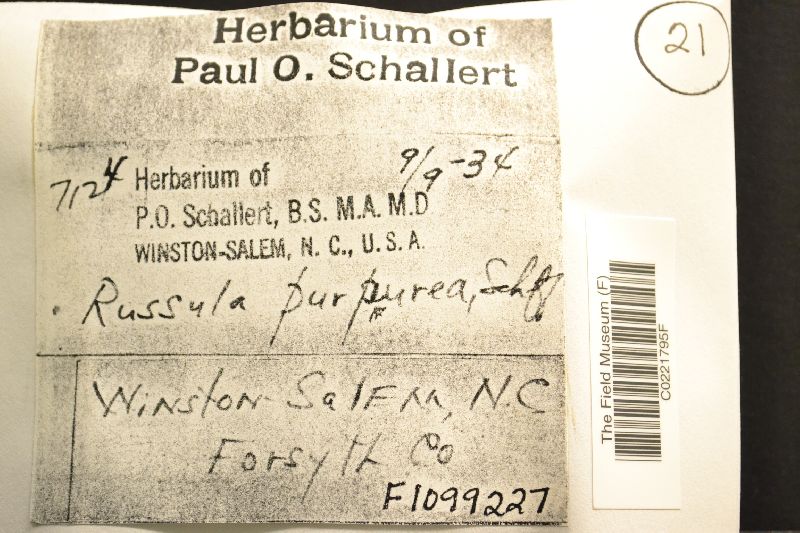 Herbarium of
Paul O. Schallert
21
7124 Herbarium of 9/9-34
P.O. Schallert, B.S. M.A. M.D
WINSTON-SALEM, N. C., U. S. A.
Russula purpurea, Schff
Winston-Salem, N.C
Forsyth Co
F1099227
The Field Museum (F)
C0221795F